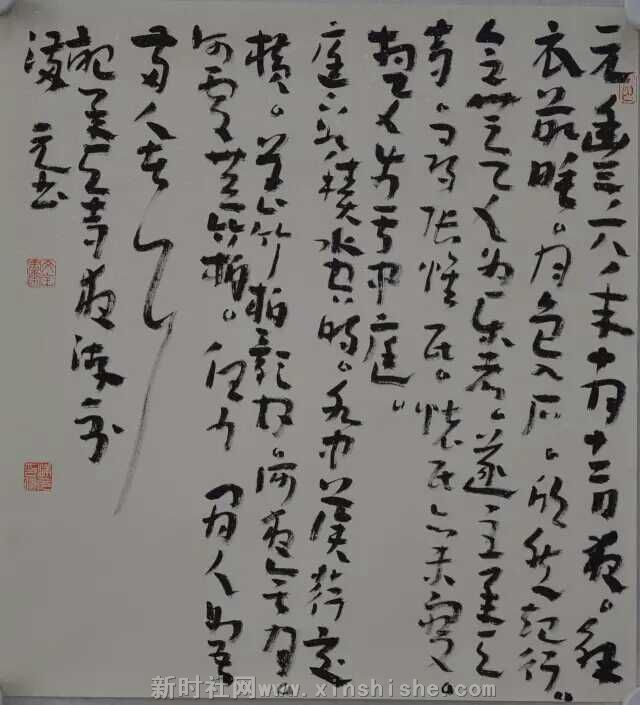 元豐六年十月十二日夜。解
衣欲睡。月色入户。欣然起行。
念無与为乐者。遂至承天
寺。寻张怀民。怀民亦未寝。
相与步于中庭。
庭下如积水空明。水中藻荇交
横。盖竹柏影也。何夜无月。
何处无竹柏。但少闲人如吾
两人者耳
記承天寺夜游
元书
新时社网www.xinshishe.com